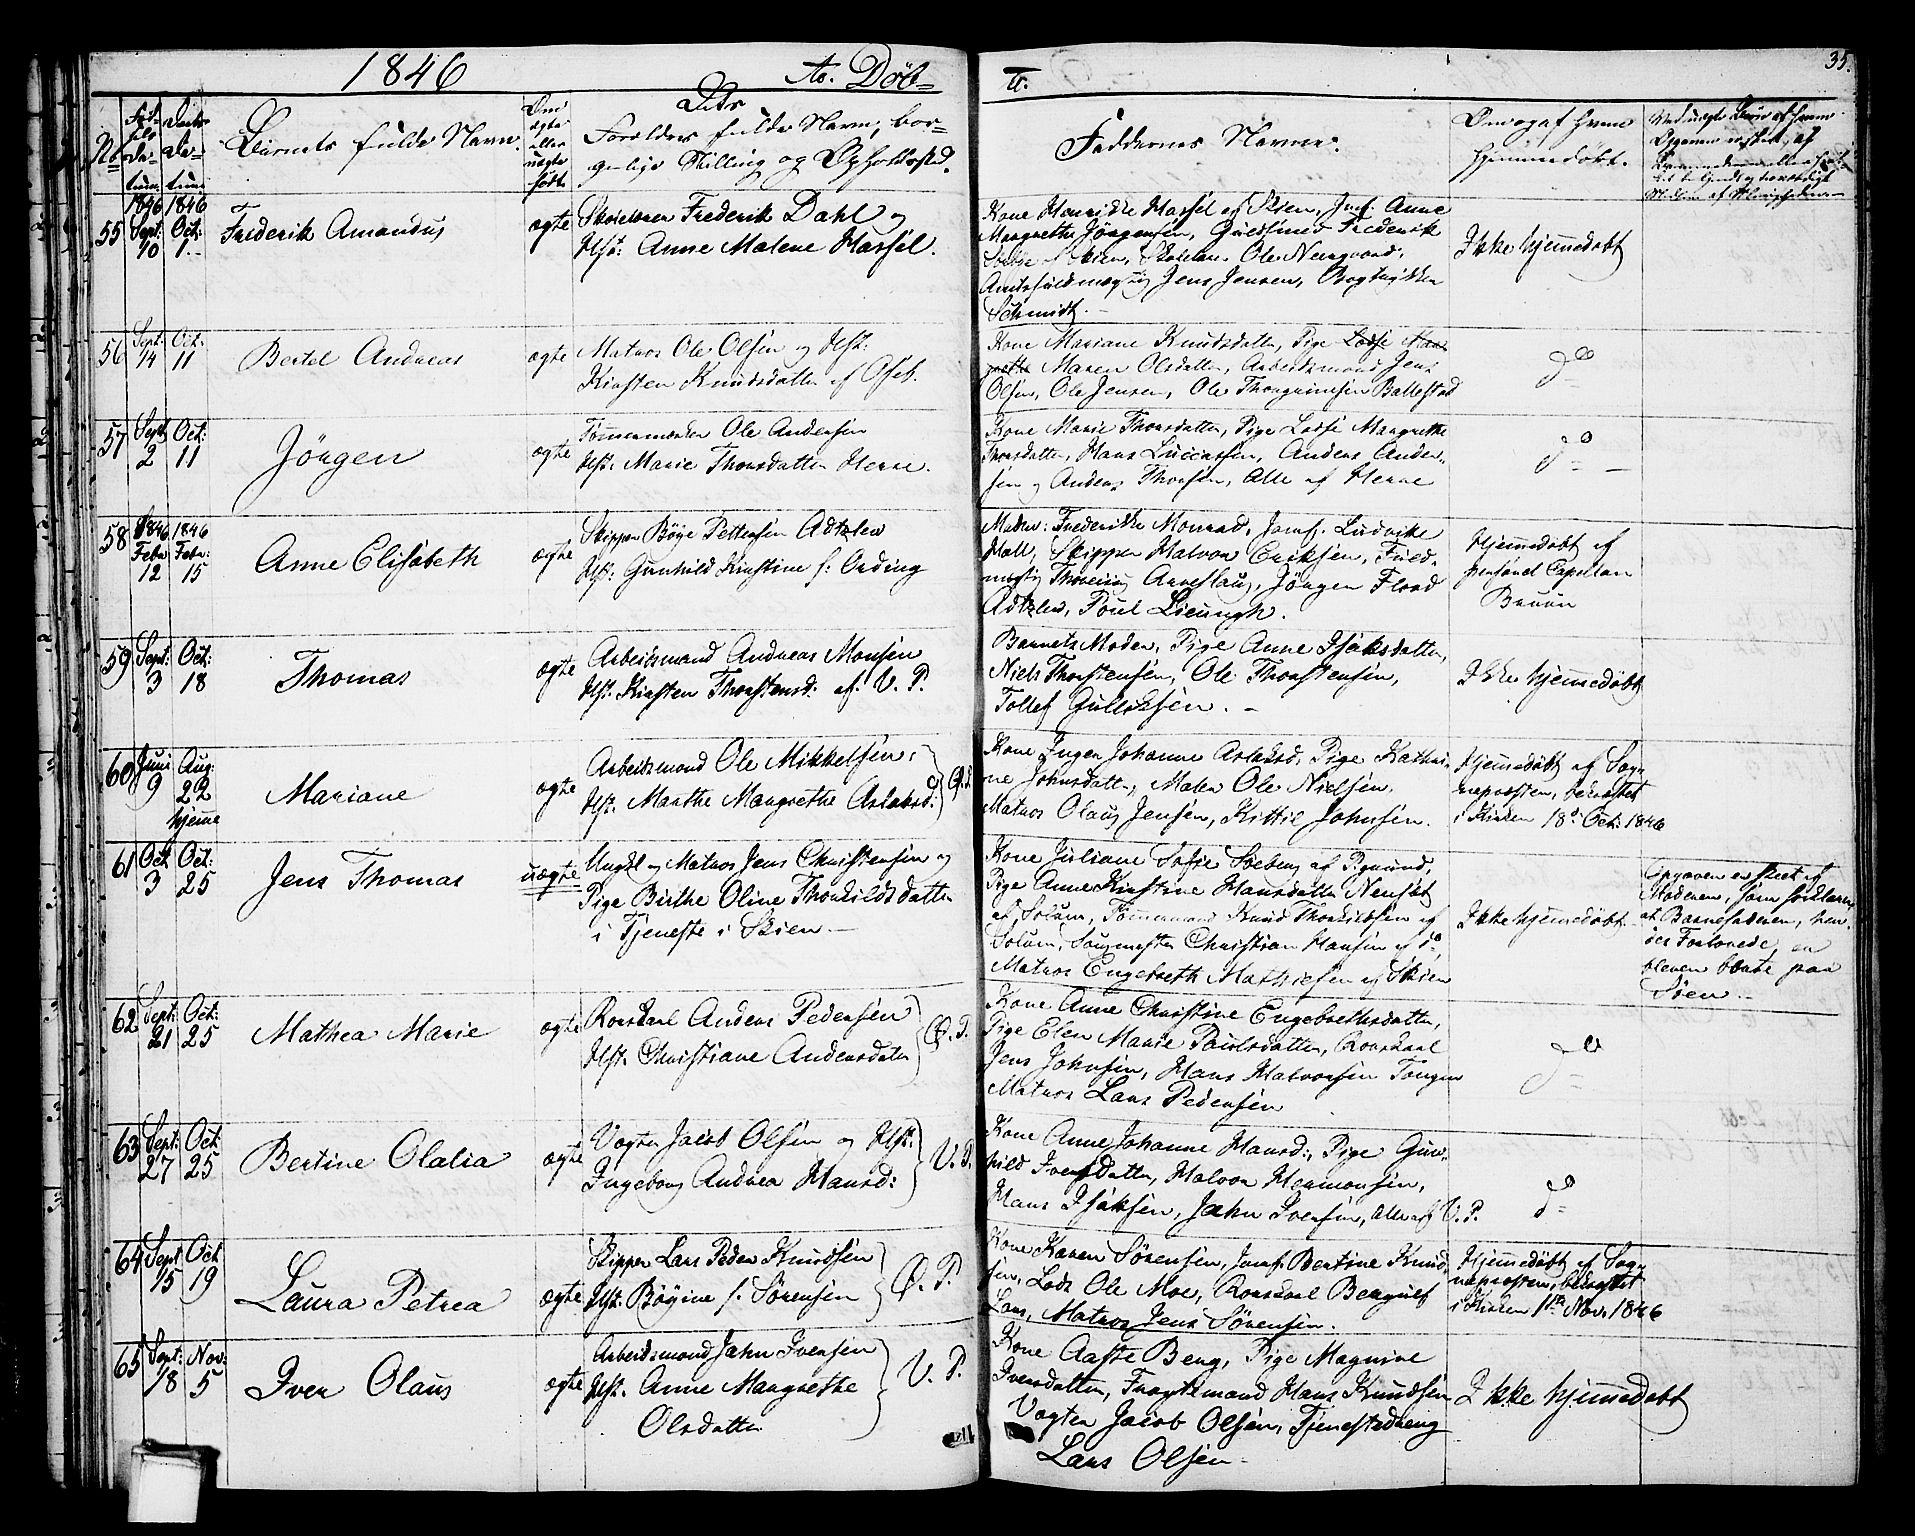 1846
A. Döb=
te.
35.
No
Barnets fulde Navn.
Forældres fulde Navn, bor=
gerlige Stilling og Opholdssted.
Faddernes Navne.
Om og af hvem
hjemmedøbt.
55
1846 Sept: 10
1846 Oct: 1.
Frederik Amandus
ægte
Frederik Dahl og
Hst: Anne Malene Hassel.
Kone Henrikke Hassel af Skien, Jmf. Anne
Margrethe Jørgensen, Guldsmed Frederik
Skien, Ole Neergaard,
Amtsfuldmægtig Jens Jensen, Bogtrykker
Schmidt.
Ikke hjemmedöbt
56
Sept: 14
Oct: 11
Bertel Andreas
ægte
Matros Ole Olsen og Hst:
Kirsten Knudsdatter af Oseb.
Kone Mariane Knudsdatter, Pige
Maren Olsdatter, Arbeidsmand Jens
Olsen, Ole Jensen, Ole Thorgrimsen Ballestad
do
57
Sept 2
Oct: 11
Jörgen
ægte
Tømmermanden Ole Andersen
Hst: Marie Thorsdatter Herre.
Kone Marie Thorsdatter, Pige Margrethe
Thorsdatter, Hans Luccassen, Anders Ander=
sen og Anders Thorsen, Alle af Herre
do
58
1846 Febr 12
1846 Febr: 15
Anne Elisabeth
ægte
Skipper Böye Pettersen Adtzlev
Hst: Gunhild Kirstine f: Ording
Moder: Frederikke Monrad, Jomf. Ludvike
Hall, Skipper Halvor Eriksen, Fuld=
mægtig Aneslaug, Jörgen Flood
Adtzlev, Poul Lieungh.
Hjemmedöbt af
personel Capellan
Bruun
59
Sept: 3
Oct: 18
Thomas
ægte
Arbeidsmand Andreas Monsen
Hst: Kirsten Thorstensd: af: V. P.
Barnets Moder, Pige Anne Isaksdatter,
Niels Thorstensen, Ole Thorstensen,
Tollef Gulleksen.
Ikke hjemmedöbt
60
Juni 9
Aug: 22 hjeme
Mariane
ægte
Arbeidsmand Ole Mikkelsen,
Hst: Marthe Margrethe Aslaksd:
Kone Inger Johanne Aslaksd, Pige Kathri=
ne Johnsdatter, Maler Ole Nielsen,
Matros Olaus Jensen, Kittil Johnsen.
Hjemmedöbt af Sog=
nepræsten, bekræftet
i Kirken 18d: Oct: 1846
61
Oct 3
Oct: 25
Jens Thomas
uægte
Ungkl og Matros Jens Christensen og
Pige Birthe Oline Thorkildsdatter
i Tjeneste i Skien.
Kone Juliane Sofie Soeberg af Pgrund,
Pige Anne Kirstine Hansdatter Nenset
af Solum, Tømmermand Knud Thorkildsen af
Solum, Christian Hansen af do
Matros Engebreth Mathiesen af Skien
Ikke hjemmedöbt.
Opgaven er skeet af
Moderen, som forklarer
at Barnefaderen, hen=
des Forlovede, er
bleven borte paa
Söen.
62
Sept: 21
Oct: 25
Mathea Marie
ægte
Rorskarl Anders Pedersen
Hst: Christiane Andersdatter
Ö. P.
Kone Anne Christine Engebrethsdatter,
Pige Elen Marie Poulsdatter, Rorskarl
Jens Johnsen, Hans Halvorsen Tangen
Matros Lars Pedersen
do
63
Sept: 27
Oct: 25
Bertine Olalia
ægte
Vogter Jacob Olsen og Hst:
Ingeborg Andrea Hansd:
V. P.
Kone Anne Johanne Hansd:, Pige Gun=
hild Iversdatter, Halvor Hermansen,
Hans Isaksen, Jahn Iversen, Alle af V. P.
do
64
Sept 15
Oct 19
Laura Petrea
ægte
Skipper Lars Peder Knudsen
Hst: Bögine f: Sörensen
Ö. P.
Kone Karen Sörensen, Jomf. Bertine Knud=
sen, Lods Ole Moe, Rorskarl Bergulf
Lars, Matros Jens Sörensen.
Hjemmedöbt af Sog=
nepræsten, bekræftet
i Kirken 11te Nov. 1846
65
Sept: 18
Nov: 5
Iver Olaus
ægte
Arbeidsmand Jahn Iversen
Hst. Anne Margrethe
Olsdatter
V. P.
Kone Aaste Berg, Pige Magnine
Iversdatter, Fragtemand Hans Knudsen
Vogter Jacob Olsen, Tjenestedreng
Lars Olsen
Ikke hjemmedöbt